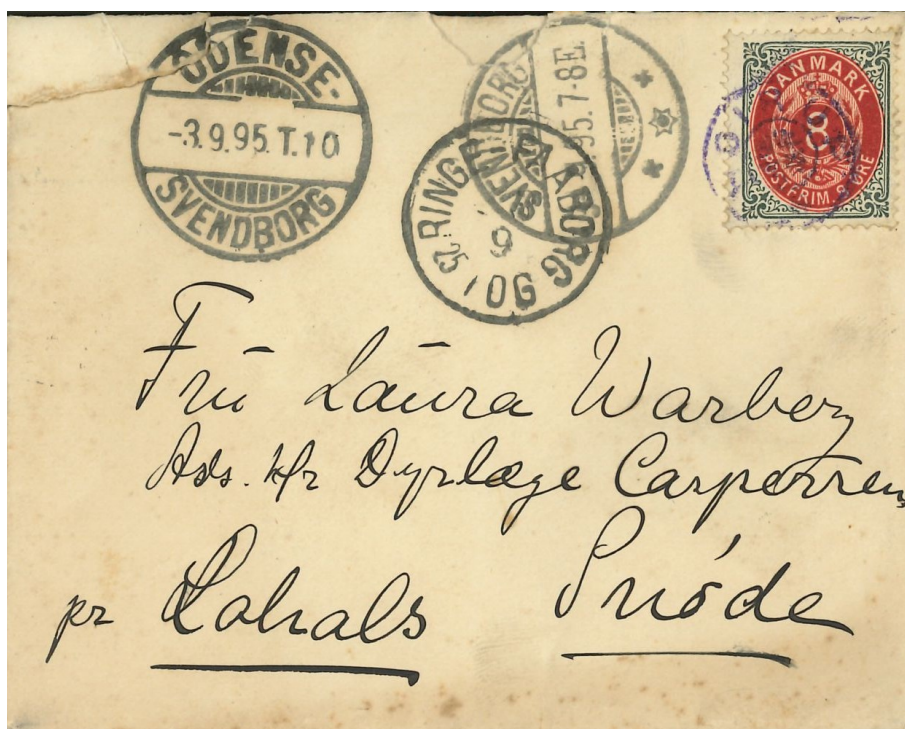 ODENSE-
-3.9.95.T.10
SVENDBORG
SVENDBORG
95.7-8E.
RINGE
FAABORG
9
DANMARK
8
POSTFRIM. ØRE
Frü Laüra Warberg
Adr. Hr Dyrlæge Caspersen
pr Lohals Snóde